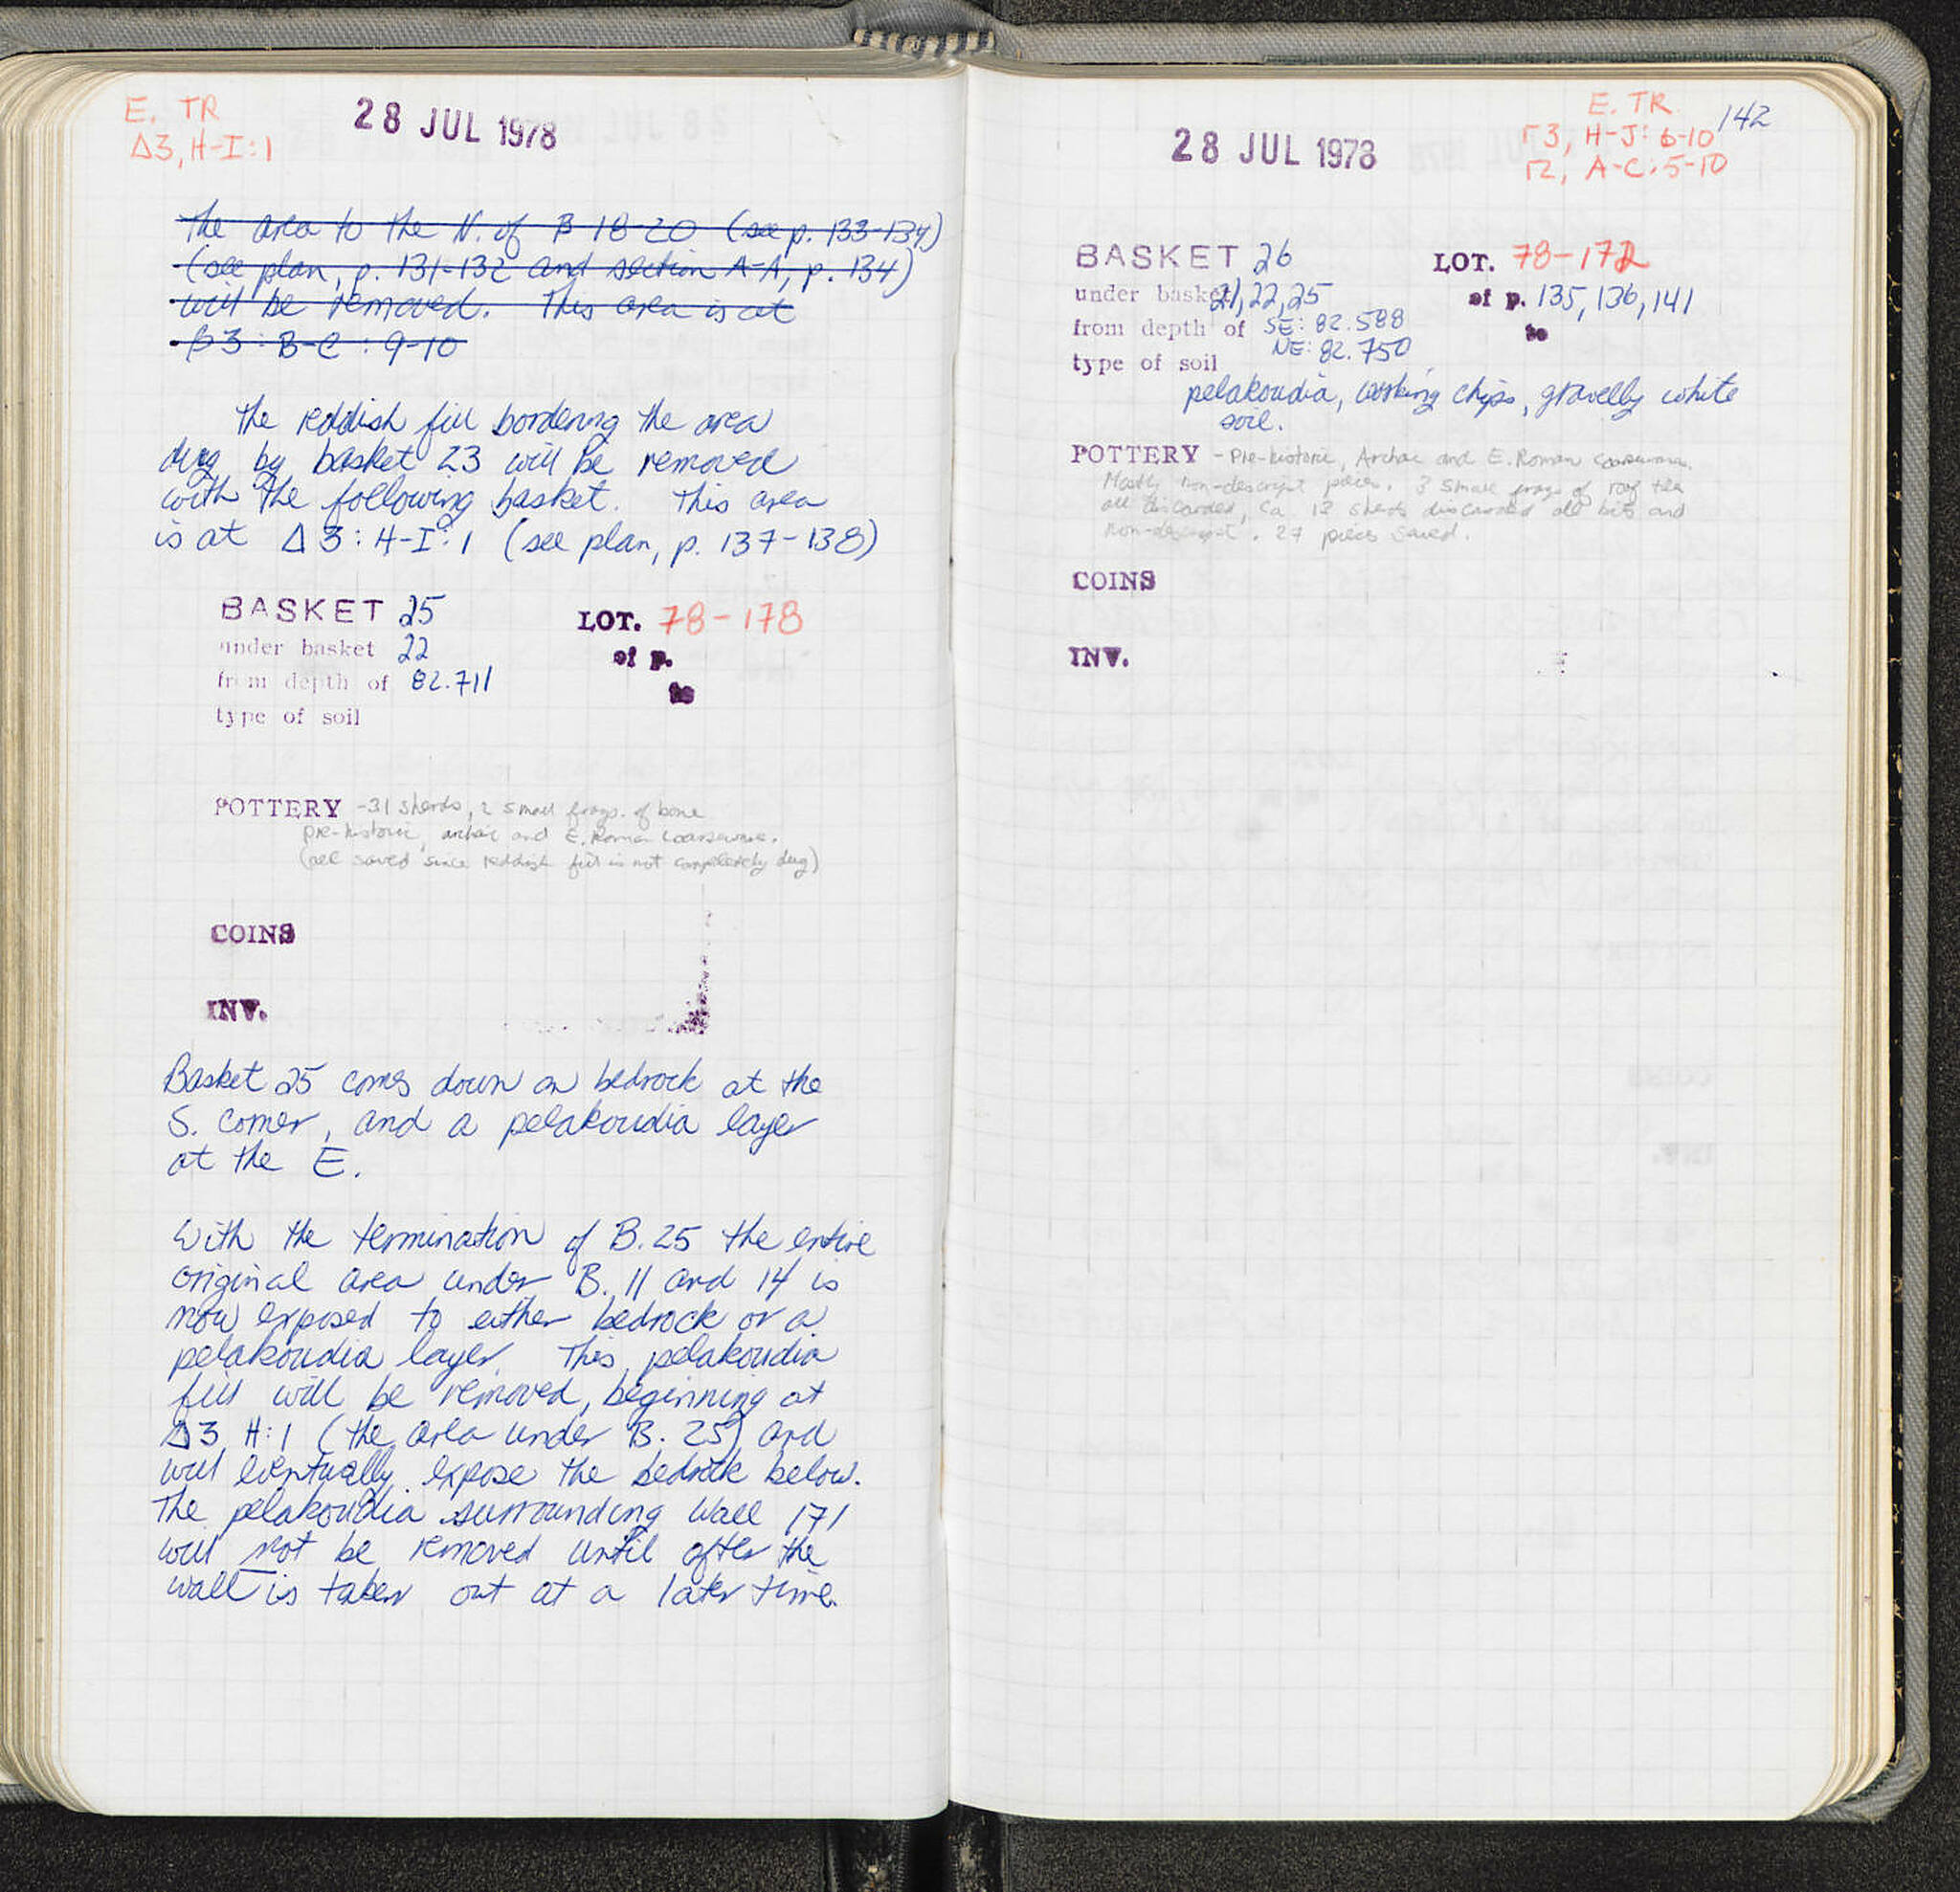 E. TR
Δ3, H-I:1
28 JUL 1978
The area to the N. of B 18-20 (see p. 133-134)
(see plan, p. 131-132 and section A-A, p. 134)
will be removed. This area is at
B3 : B-C : 9-10
The reddish fill bordering the area
dug by basket 23 will be removed
with the following basket. This area
is at Δ3: H-I:1 (see plan, p. 137-138)
BASKET 25 LOT. 78-178
under basket 22 of p.
from depth of 82.711 to
type of soil
POTTERY -31 sherds, 2 small frags. of bone
pre-historic, archaic and E. Roman coarseware.
(all saved since reddish fill is not completely dug)
COINS
INV.
Basket 25 comes down on bedrock at the
S. corner, and a pelakoudia layer
at the E.
With the termination of B.25 the entire
original area under B. 11 and 14 is
now exposed to either bedrock or a
pelakoudia layer. This pelakoudia
fill will be removed, beginning at
Δ3 H:1 (the area under B. 25) and
will eventually expose the bedrock below.
The pelakoudia surrounding Wall 171
will not be removed until after the
wall is taken out at a later time.
E. TR 142
Γ3, H-J: 6-10
Γ2, A-C: 5-10
28 JUL 1978
BASKET 26 LOT. 78-172
under basket 21,22,25 of p. 135, 136, 141
from depth of SE: 82.588 to
NE: 82.750
type of soil
pelakoudia, working chips, gravelly white
soil.
POTTERY - Pre-historic, Archaic and E. Roman coarseware.
Mostly non-descript pieces. 3 small frags of roof tile
all discarded, Ca. 12 sherds discarded all bits and
non-descript. 27 pieces saved.
COINS
INV.